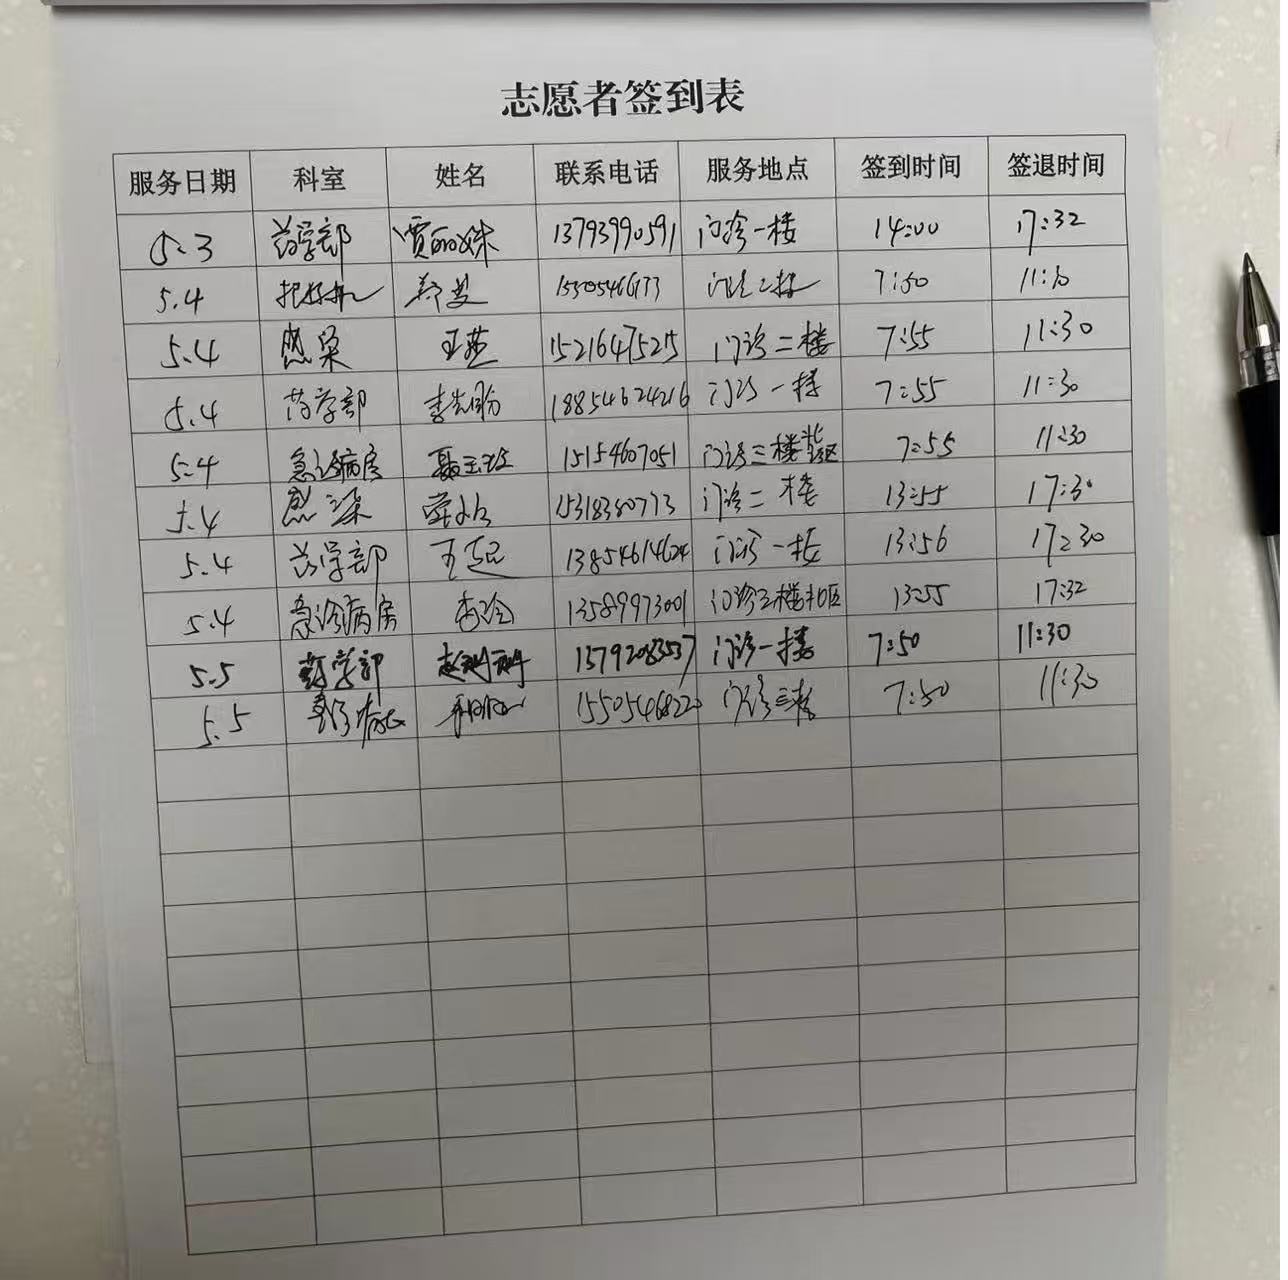 志愿者签到表
服务日期 科室 姓名 联系电话 服务地点 签到时间 签退时间
5.3 药学部 贾丽姝 13793990591 门诊一楼 14:00 17:32
5.4 7:50
5.4 感染 王燕 15216475215 门诊二楼 7:55 11:30
5.4 药学部 李尧盼 18854624216 门诊一楼 7:55 11:30
5.4 急诊病房 聂玉 15154607051 门诊三楼 7:55 11:30
5.4 感染 15318380773 门诊二楼 13:55 17:30
5.4 药学部 王延 13854614624 门诊一楼 13:56 17:30
5.4 急诊病房 李冷 13589973001 门诊三楼 13:55 17:32
5.5 药学部 门诊一楼 7:50 11:30
5.5 急诊病房 门诊三楼 7:50 11:30